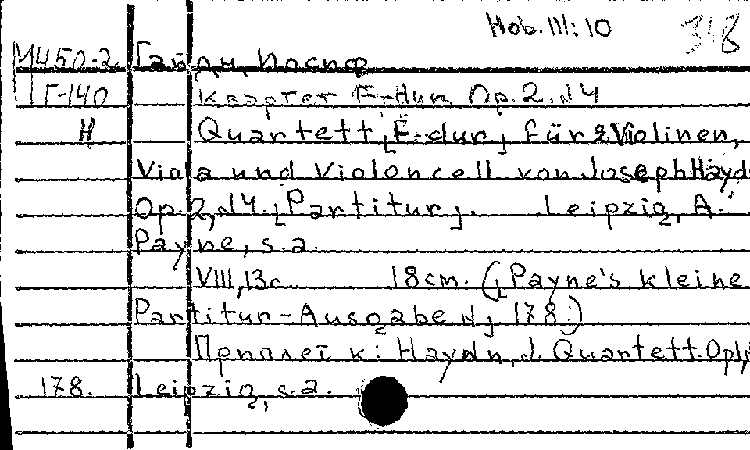 Hob. III: 10 318
М450-2. Гайдн, Иосиф
Г-140 Квартет F-dur Op. 2. №4
H Quartett [F-dur] für 2 Violinen,
Viola und Violoncell von Joseph Hayd
Op. 2, №4. [Partitur]. Leipzig, A.
Payne, s. a.
VIII, 13 c 18 cm. ([Payne's kleine
Partitur-Ausgabe №] 178.)
Приплет к: Haydn, J. Quartett. Op.1,
178. Leipzig, s. a.